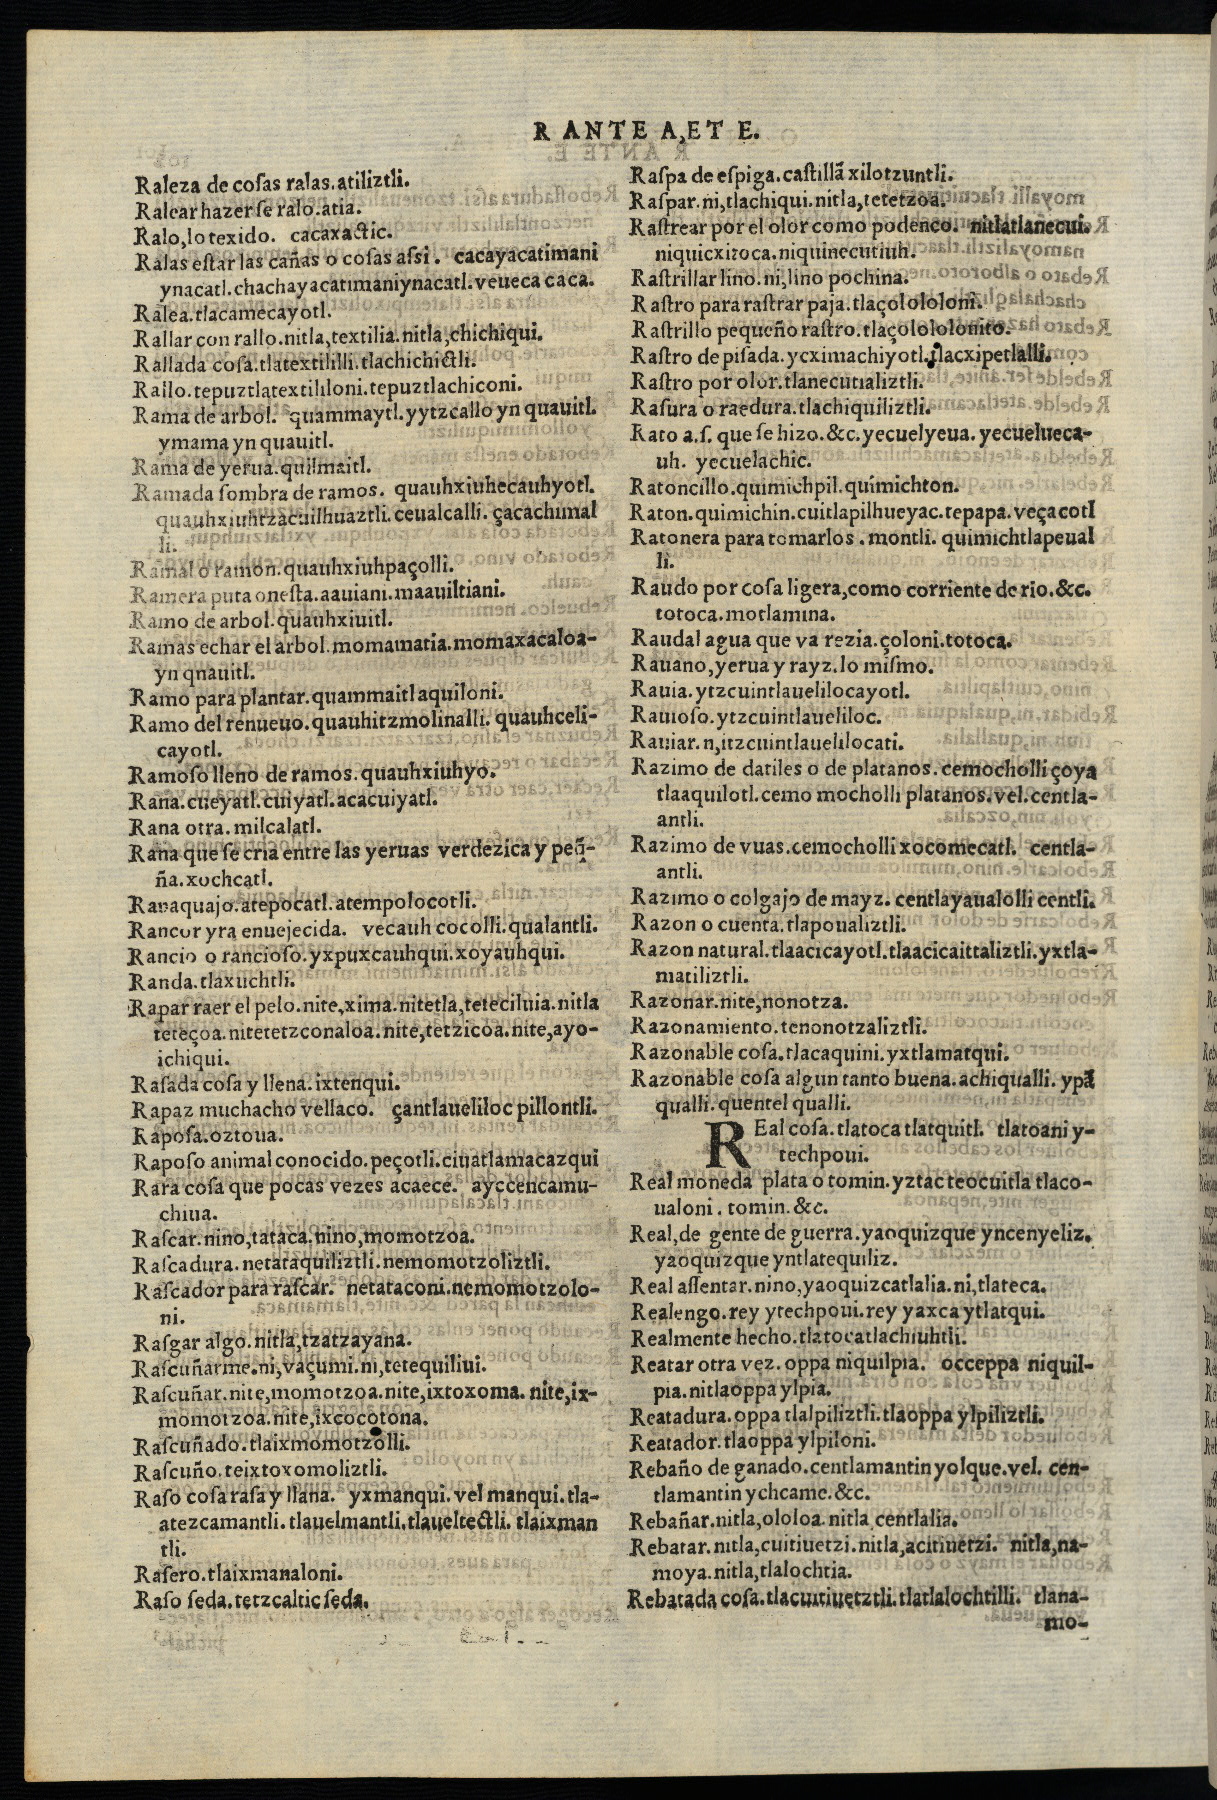 R ANTE A,ET E.
Raleza de coſas ralas.atiliztli.
Ralear hazer ſe ralo.atia.
Ralo,lo texido. cacaxactic.
Ralas eſtar las cañas o coſas aſsi. cacayacatimani
ynacatl.chachayacatimaniynacatl.veueca caca.
Ralea.tlacamecayotl.
Rallar con rallo.nitla,textilia.nitla,chichiqui.
Rallada coſa.tlatextililli.tlachichictli.
Rallo.tepuztlatextililoni.tepuztlachiconi.
Rama de arbol. quammaytl.yytzcallo yn quauitl.
ymama yn quauitl.
Rama de yerua.quilmaitl.
Ramada ſombra de ramos. quauhxiuhecauhyotl.
quauhxiuhtzacuilhuaztli.ceualcalli. çacachimal
li.
Ramal o ramon.quauhxiuhpaçolli.
Ramera puta oneſta.aauiani.maauiltiani.
Ramo de arbol.quauhxiuitl.
Ramas echar el arbol.momamatia.momaxacaloa-
yn qnauitl.
Ramo para plantar.quammaitl aquiloni.
Ramo del renueuo.quauhitzmolinalli. quauhceli-
cayotl.
Ramoſo lleno de ramos.quauhxiuhyo.
Rana.cueyatl.cuiyatl.acacuiyatl.
Rana otra.milcalatl.
Rana que ſe cria entre las yeruas verdezica y peq̃-
ña.xochcatl.
Ranaquajo.atepocatl.atempolocotli.
Rancor yra enuejecida. vecauh cocolli.qualantli.
Rancio o rancioſo.yxpuxcauhqui.xoyauhqui.
Randa.tlaxuchtli.
Rapar raer el pelo.nite,xima.nitetla,teteciluia.nitla
teteçoa.nitetetzconaloa.nite,tetzicoa.nite,ayo-
ichiqui.
Raſada coſa y llena.ixtenqui.
Rapaz muchacho vellaco. çantlaueliloc pillontli.
Rapoſa.oztoua.
Rapoſo animal conocido.peçotli.ciuatlamacazqui
Rara coſa que pocas vezes acaece. ayccencamu-
chiua.
Raſcar.nino,tataca.nino,momotzoa.
Raſcadura.netataquiliztli.nemomotzoliztli.
Raſcador para raſcar. netataconi.nemomotzolo-
ni.
Raſgar algo.nitla,tzatzayana.
Raſcuñarme.ni,vaçumi.ni,tetequiliui.
Raſcuñar.nite,momotzoa.nite,ixtoxoma.nite,ix-
momotzoa.nite,ixcocotona.
Raſcuñado.tlaixmomotzolli.
Raſcuño.teixtoxomoliztli.
Raſo coſa raſa y llana. yxmanqui.vel manqui.tla-
atezcamantli.tlauelmantli.tlaueltectli. tlaixman
tli.
Raſero.tlaixmanaloni.
Raſo ſeda.tetzcaltic ſeda.
Raſpa de eſpiga.caſtillã xilotzuntli.
Raſpar.ni,tlachiqui.nitla,tetetzoa.
Raſtrear por el olor como podenco. nitlatlanecui.
niquicxitoca.niquinecutiuh.
Raſtrillar lino.ni,lino pochina.
Raſtro para raſtrar paja.tlaçolololoni.
Raſtrillo pequeño raſtro.tlaçolololonito.
Raſtro de piſada.ycximachiyotl.tlacxipetlalli.
Raſtro por olor.tlanecutializtli.
Raſura o raedura.tlachiquiliztli.
Rato a.ſ. que ſe hizo.&c.yecuelyeua.yecuelueca-
uh. yecuelachic.
Ratoncillo.quimichpil.quimichton.
Raton.quimichin.cuitlapilhueyac.tepapa.veçacotl
Ratonera para tomarlos.montli. quimichtlapeual
li.
Raudo por coſa ligera,como corriente de rio.&c.
totoca.motlamina.
Raudal agua que va rezia.çoloni.totoca.
Rauano,yerua y rayz.lo miſmo.
Rauia.ytzcuintlauelilocayotl.
Rauioſo.ytzcuintlaueliloc.
Rauiar.n,itzcuintlauelilocati.
Razimo de datiles o de platanos.cemocholli çoya
tlaaquilotl.cemo mocholli platanos.vel.centla-
antli.
Razimo de vuas.cemocholli xocomecatl. centla-
antli.
Razimo o colgajo de mayz.centlayaualolli centli.
Razon o cuenta.tlapoualiztli.
Razon natural.tlaacicayotl.tlaacicaittaliztli.yxtla-
matiliztli.
Razonar.nite,nonotza.
Razonamiento.tenonotzaliztli.
Razonable coſa.tlacaquini.yxtlamatqui.
Razonable coſa algun tanto buena.achiqualli. ypã
qualli.quentel qualli.
REal coſa.tlatoca tlatquitl. tlatoani y-
techpoui.
Real moneda plata o tomin.yztac teocuitla tlaco-
ualoni.tomin.&c.
Real,de gente de guerra.yaoquizque yncenyeliz.
yaoquizque yntlatequiliz.
Real aſſentar.nino,yaoquizcatlalia.ni,tlateca.
Realengo.rey ytechpoui.rey yaxca ytlatqui.
Realmente hecho.tlatocatlachiuhtli.
Reatar otra vez.oppa niquilpia. occeppa niquil-
pia.nitlaoppa ylpia.
Reatadura.oppa tlalpiliztli.tlaoppa ylpiliztli.
Reatador.tlaoppa ylpiloni.
Rebaño de ganado.centlamantin yolque.vel. cen-
tlamantin ychcame.&c.
Rebañar.nitla,ololoa.nitla centlalia.
Rebatar.nitla,cuitiuetzi.nitla,acitiuetzi. nitla,na-
moya.nitla,tlalochtia.
Rebatada coſa.tlacuitiuetztli.tlatlalochtilli. tlana-
mo-